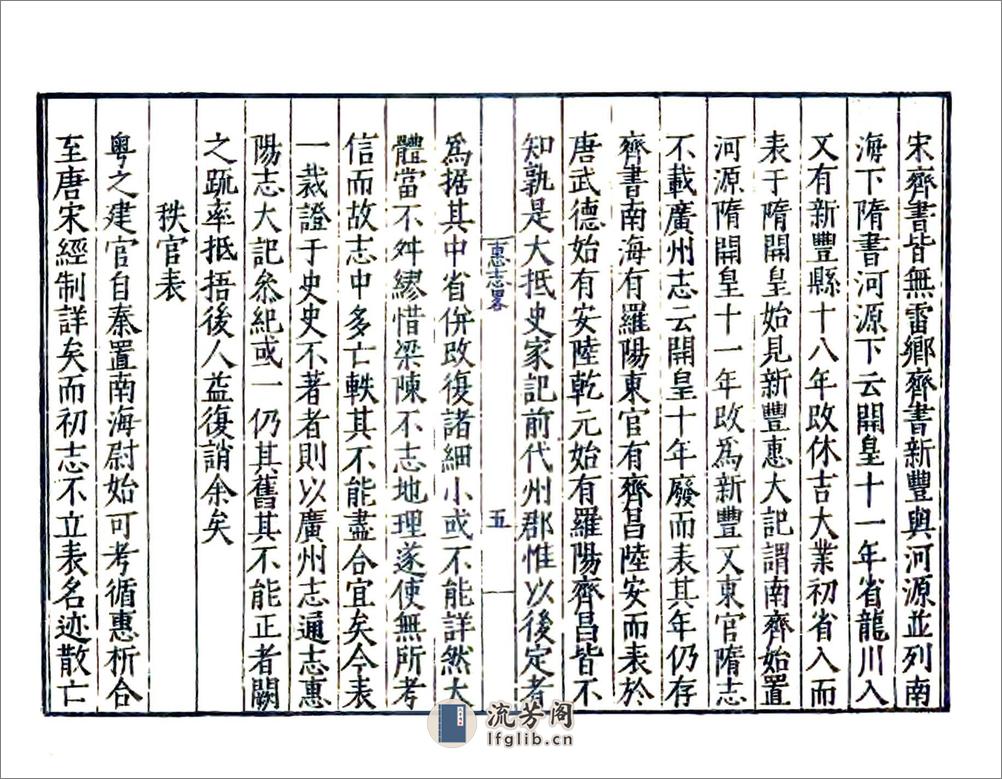 宋齊書皆無雷鄉齊書新豐與河源並列南
海下隋書河源下云開皇十一年省龍川入
又有新豐縣十八年改休吉大業初省入而
表于隋開皇始見新豐惠大記謂南齊始置
河源隋開皇十一年改爲新豐又東官隋志
不載廣州志云開皇十年廢而表其年仍存
齊書南海有羅陽東官有齊昌陸安而表於
唐武德始有安陸乾元始有羅陽齊昌皆不
知孰是大抵史家記前代州郡惟以後定者
惠志畧
五
爲据其中省併改復諸細小或不能詳然大
體當不舛繆惜梁陳不志地理遂使無所考
信而故志中多亡軼其不能盡合宜矣今表
一裁證于史史不著者則以廣州志通志惠
陽志大記叅紀或一仍其舊其不能正者闕
之䟽率抵捂後人益復誚余矣
秩官表
粵之建官自秦置南海尉始可考循惠析合
至唐宋經制詳矣而初志不立表名迹散亡
流芳阁
lfglib.cn